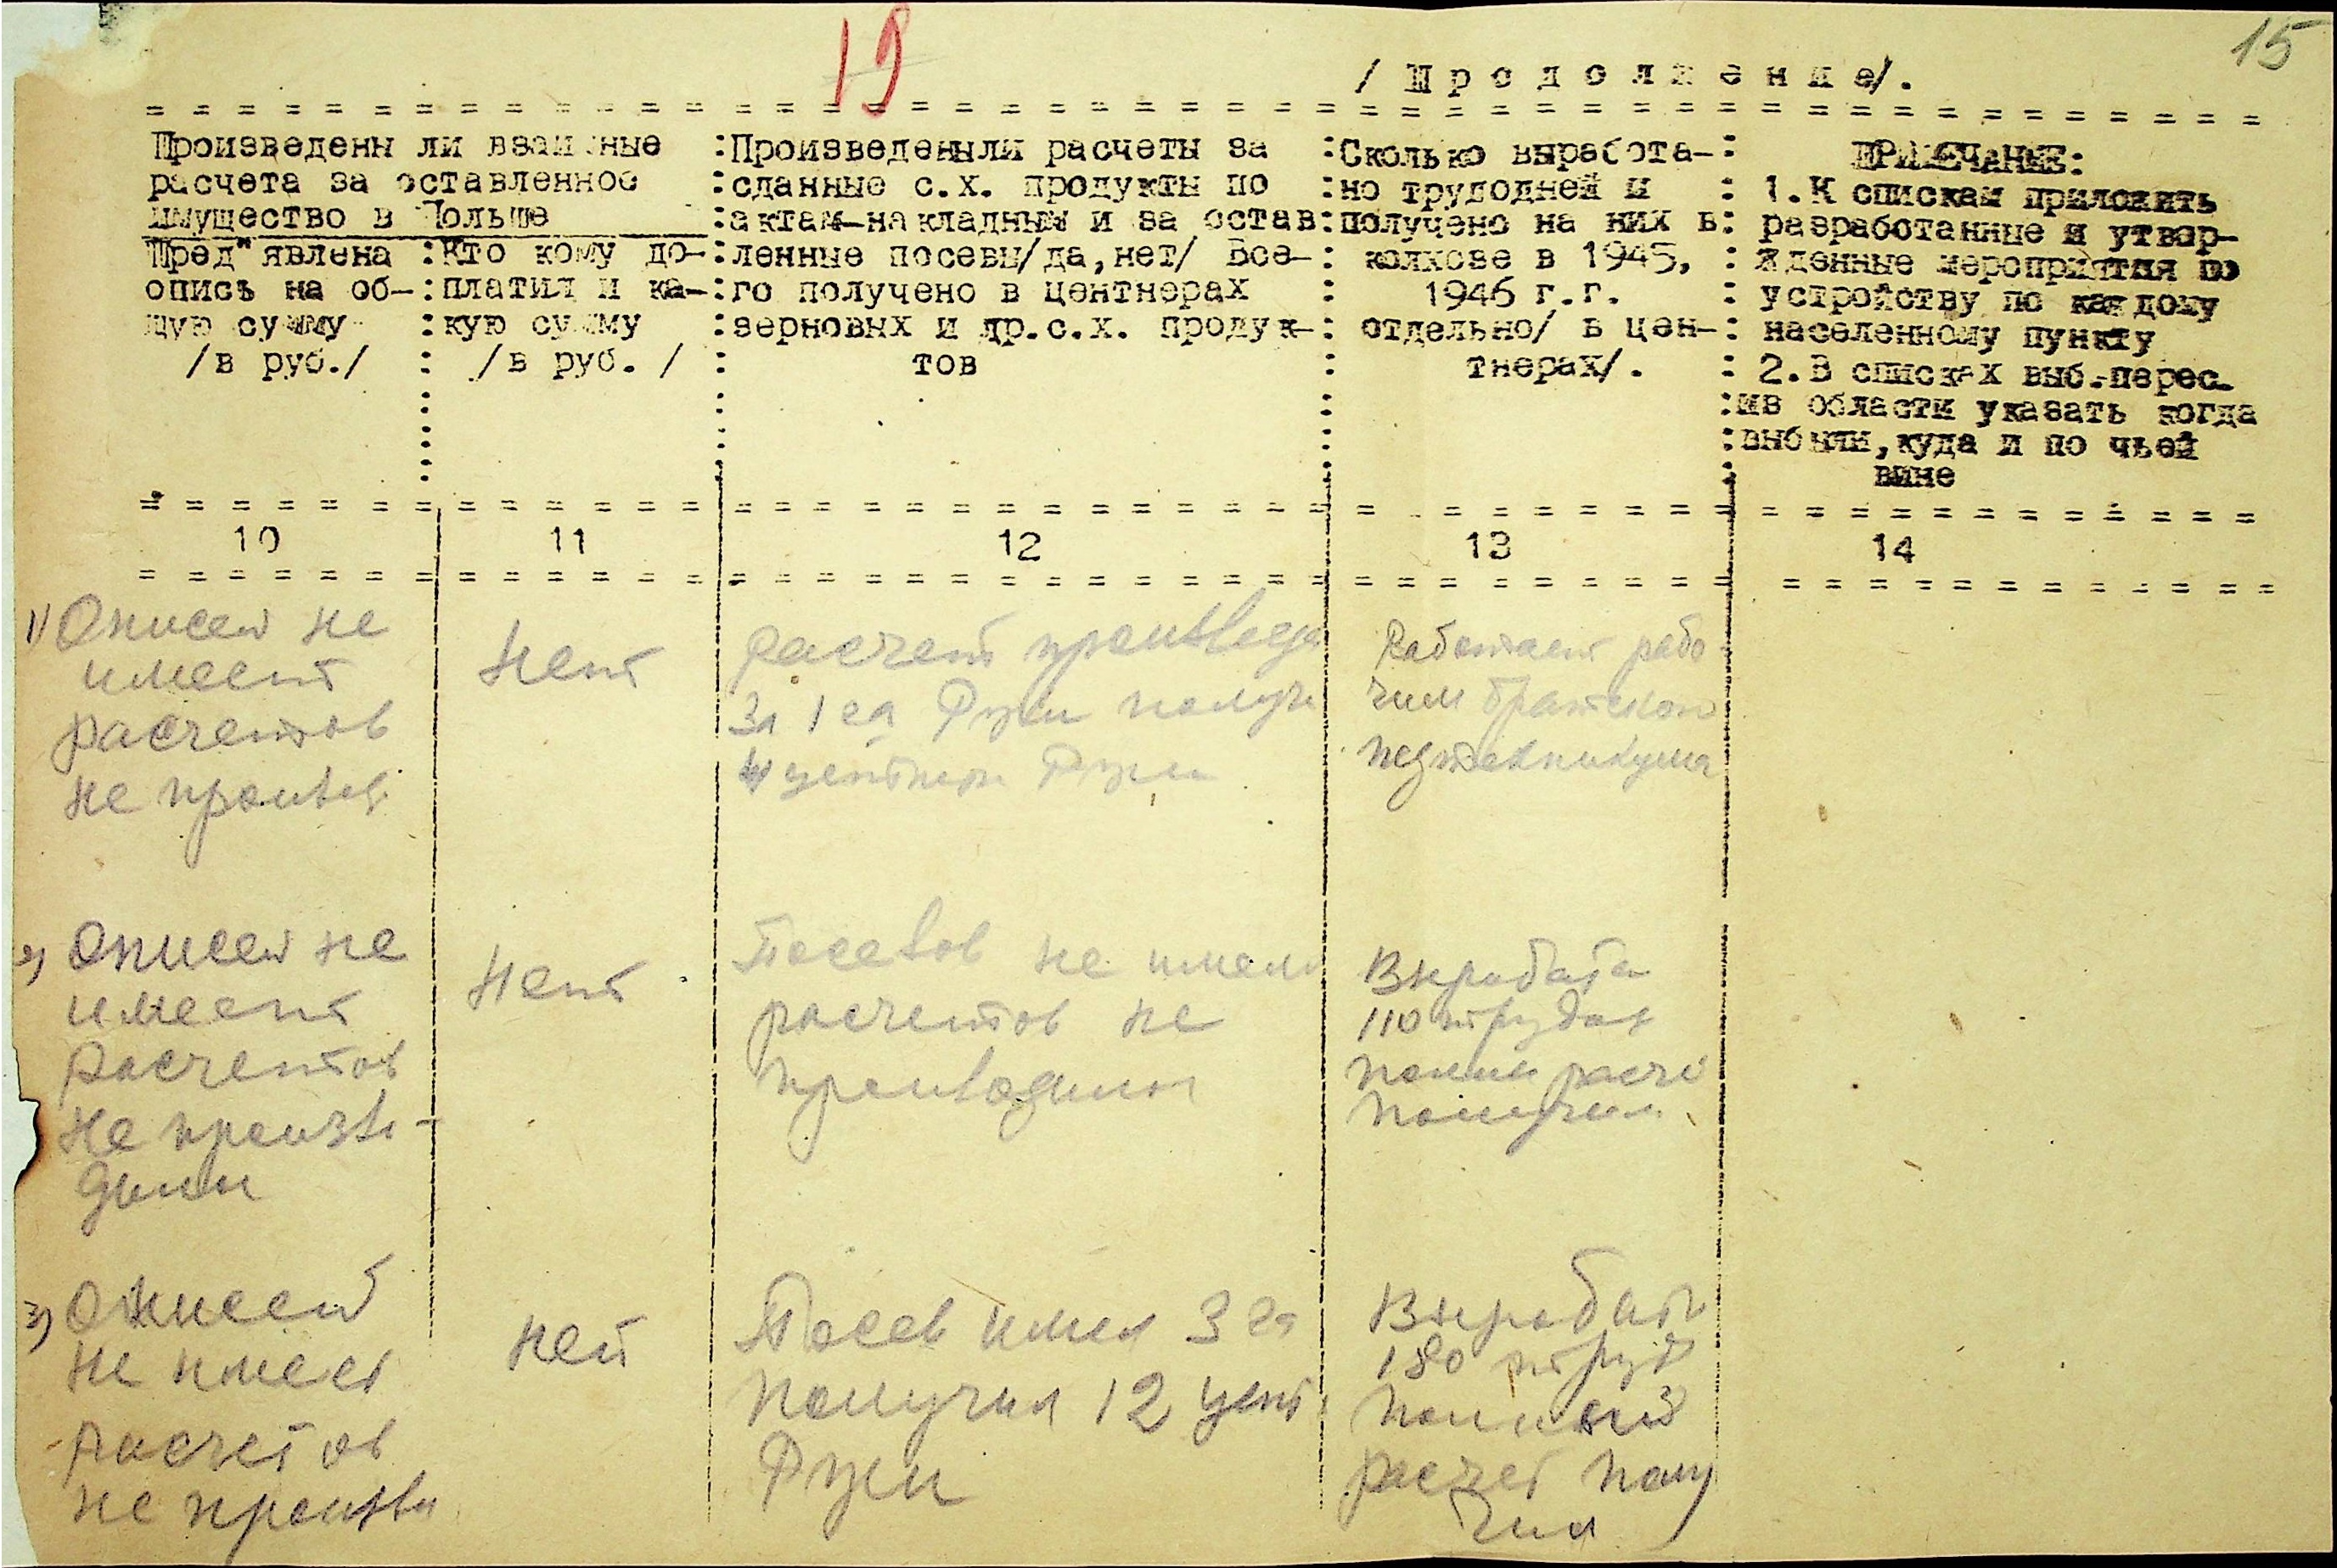 19
15
/ П р о д о л ж е н и е/.
Произведены ли взаимные
расчета за оставленное
имущество в Польше
Пред"явлена
опись на об-
щую сумму
/в руб./
Кто кому до-
платил и ка-
кую сумму
/в руб. /
Произведены ли расчеты за
сданные с.х. продукты по
актам-накладным и за остав
ленные посевы/да,нет/ Все-
го получено в центнерах
зерновых и др.с.х. продук-
тов
Сколько выработа-
но трудодней и
получено на них в
колхозе в 1945,
1946 г.г.
отдельно/ в цен-
тнерах/.
ПРИМЕЧАНИЕ:
1.К спискам приложить
разработанные и утвер-
жденные мероприятия по
устройству по каждому
населенному пункту
2.В списках выб.перес.
из области указать когда
выбыли,куда и по чьей
вине
10 11 12 13 14
1) Описей не
имеет
расчетов
не произв.
Нет
Расчет произведен
За 1 га Ржи получ
4 центнера Ржи
Работает рабо-
чим Братского
педтехникума
2) Описей не
имеет
расчетов
не произво-
дили
Нет
Посевов не имел
расчетов не
производили
Выработал
110 труд
полный расче
получил
3) Описей
не имеет
расчетов
не произво
нет
Посев имел 3 га
получил 12 цент.
Ржи
Выработал
180 труд
полный
расчет полу
чил